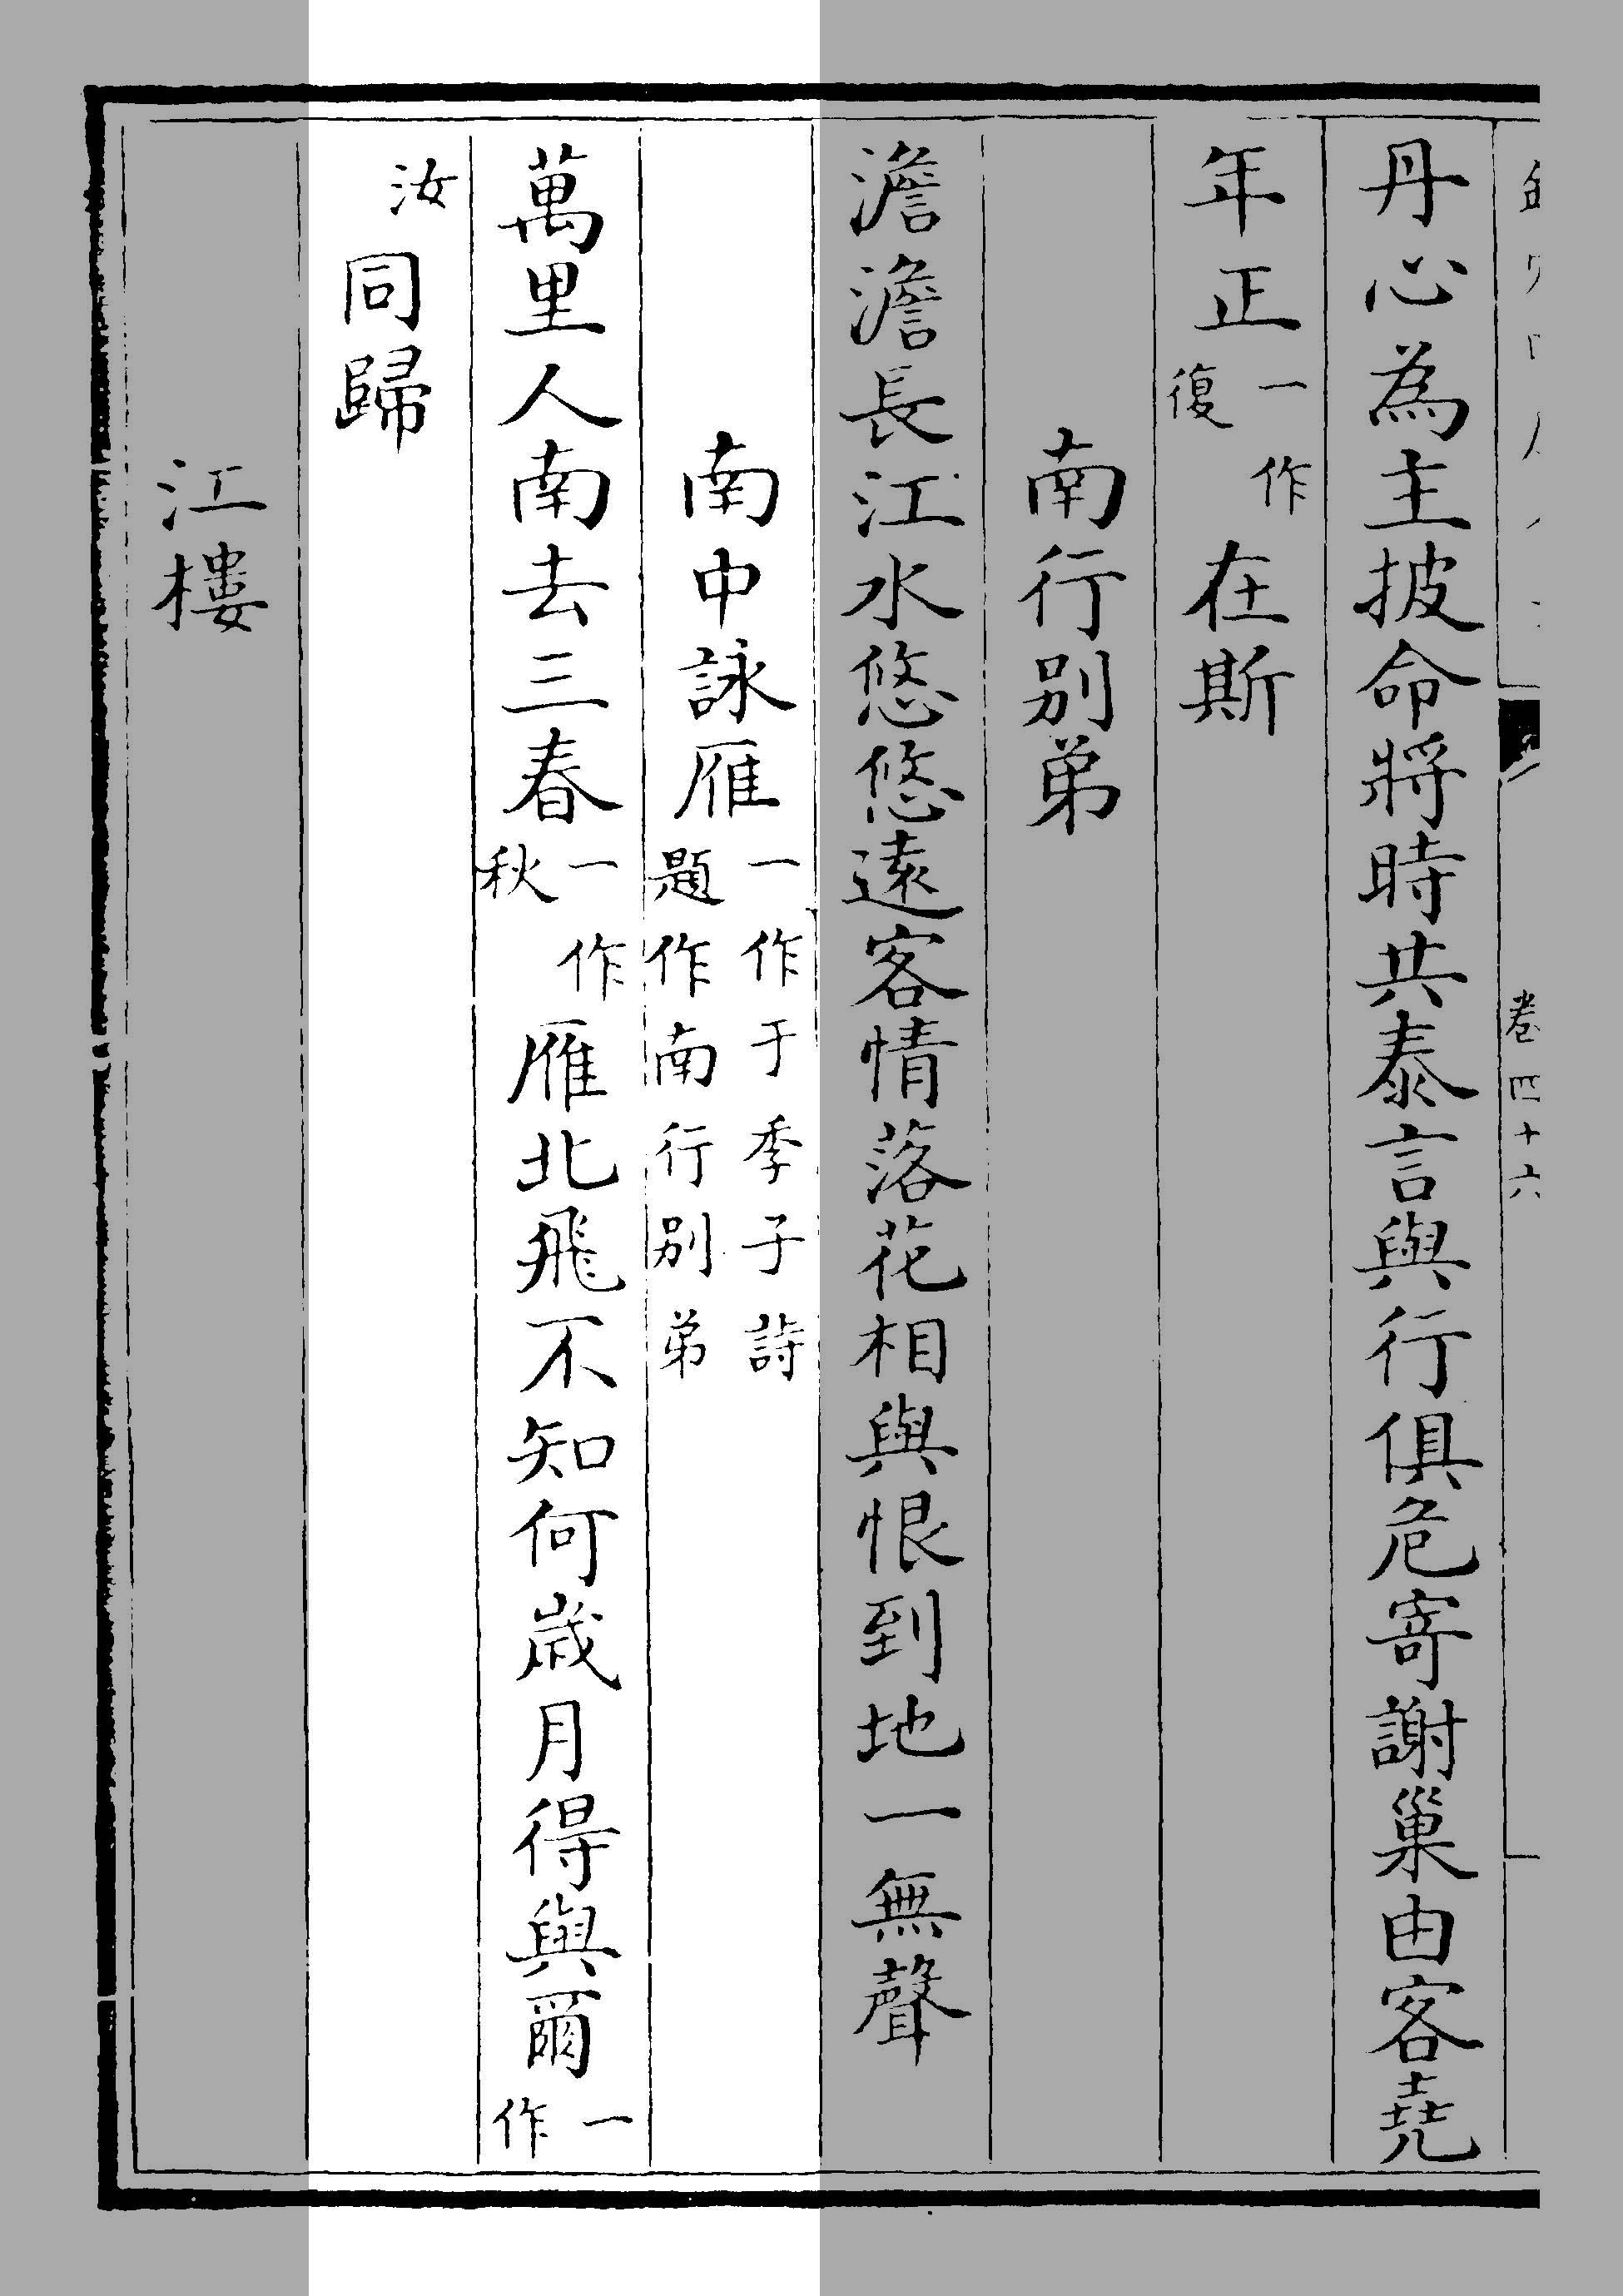 丹心為主披命將時共泰言與行俱危寄謝巢由客堯
年正一作復在斯
南行别弟
澹澹長江水悠悠遠客情落花相與恨到地一無聲
南中詠雁一作于季子詩題作南行别弟
萬里人南去三春一作秋雁北飛不知何歲月得與爾一作
汝同歸
江樓
卷四十六